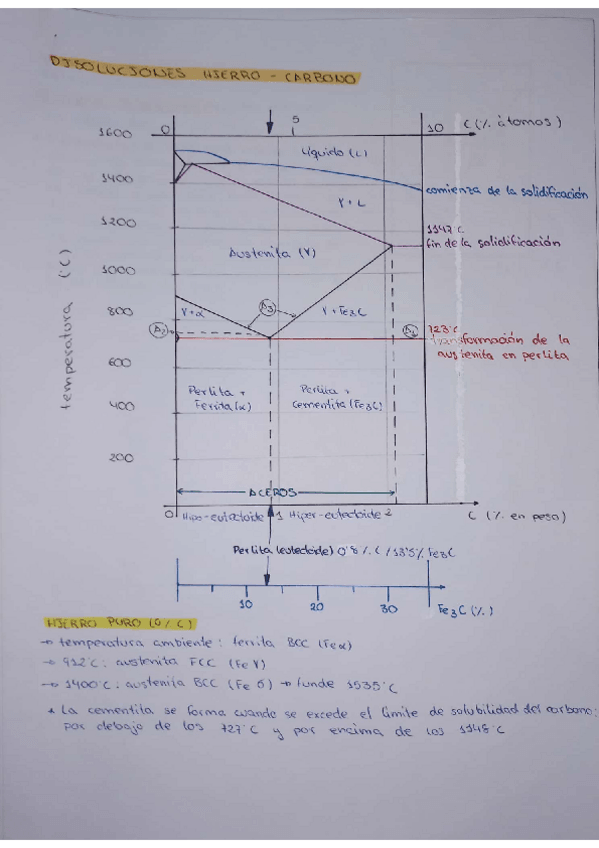 DISOLUCIONES HIERRO - CARBONO
5
0
10
C (% átomos)
1600
Líquido (L)
1400
comienza de la solidificación
γ + L
1200
1147°C
fin de la solidificación
Austenita (γ)
1000
temperatura (°C)
800
γ+α
A3
γ + Fe3C
A2
A1
723°C
transformación de la
austenita en perlita
600
Perlita +
Ferrita (α)
Perlita +
Cementita (Fe3C)
400
200
ACEROS
0
Hipo-eutectoide
1
Hiper-eutectoide
2
C (% en peso)
Perlita (eutectoide) 0'8 % C / 13'5% Fe3C
10
20
30
Fe3C (%)
HIERRO PURO (0 % C)
→ temperatura ambiente: ferrita BCC (Fe α)
→ 912°C: austenita FCC (Fe γ)
→ 1400°C: austenita BCC (Fe δ) → funde 1535°C
* La cementita se forma cuando se excede el límite de solubilidad del carbono:
por debajo de los 727°C y por encima de los 1148°C